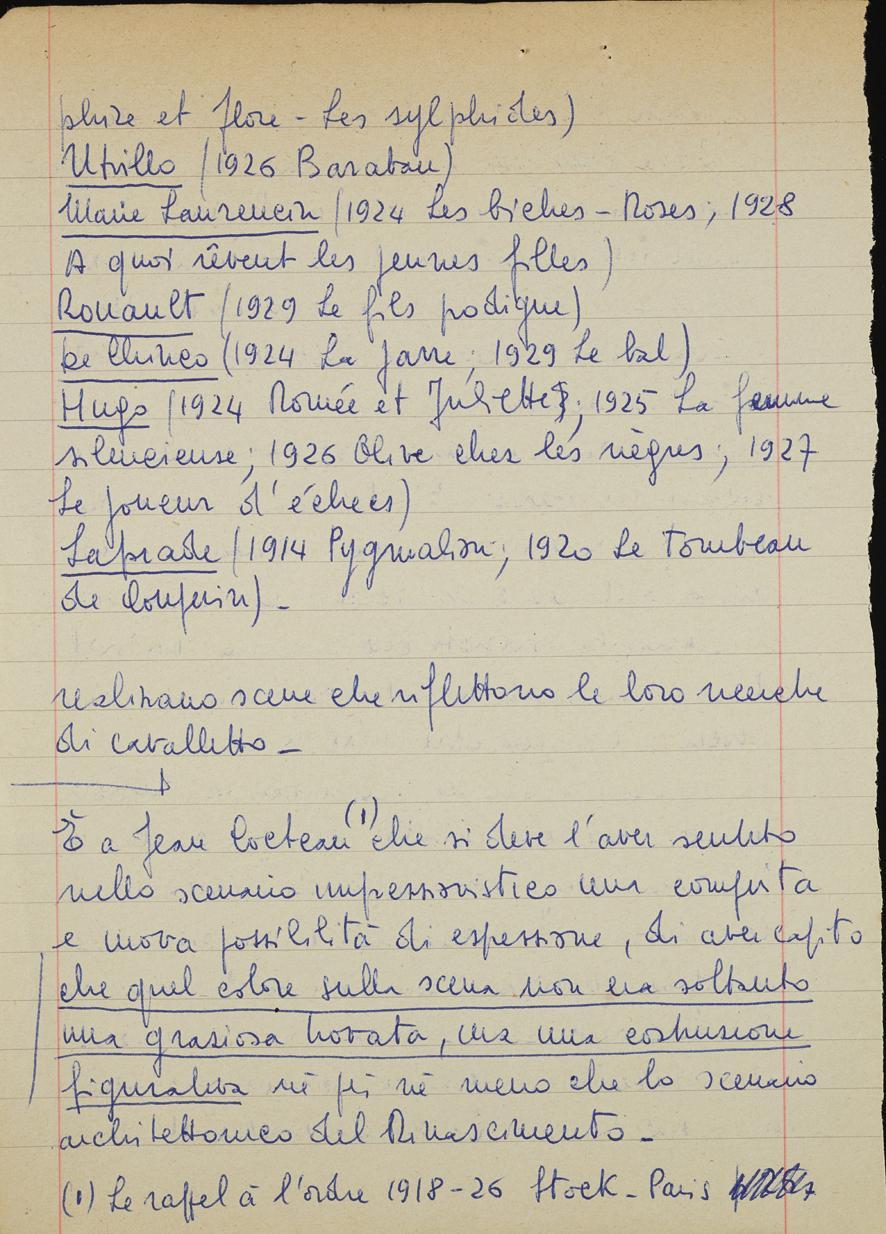 phire et flore - Les sylphides)
Utrillo (1926 Barabau)
Marie Laurencin (1924 Les biches - Roses; 1928
A quoi rêvent les jeunes filles)
Rouault (1929 Le fils prodigue)
De Chirico (1924 La Jarre; 1929 Le bal)
Hugo (1924 Romée et Juliette; 1925 La femme
silencieuse; 1926 Olive chez les nègres; 1927
Le joueur d'échecs)
Laprade (1914 Pygmalion; 1920 Le Tombeau
de Couperin) -
realizzano scene che riflettono le loro ricerche
di cavalletto -
È a Jean Cocteau (1) che si deve l'aver sentito
nello scenario impressionistico una compiuta
e nuova possibilità di espressione, di aver capito
che quel colore sulla scena non era soltanto
una graziosa trovata, ma una costruzione
figurativa né più né meno che lo scenario
architettonico del Rinascimento -
(1) Le rappel à l'ordre 1918-26 Stock - Paris